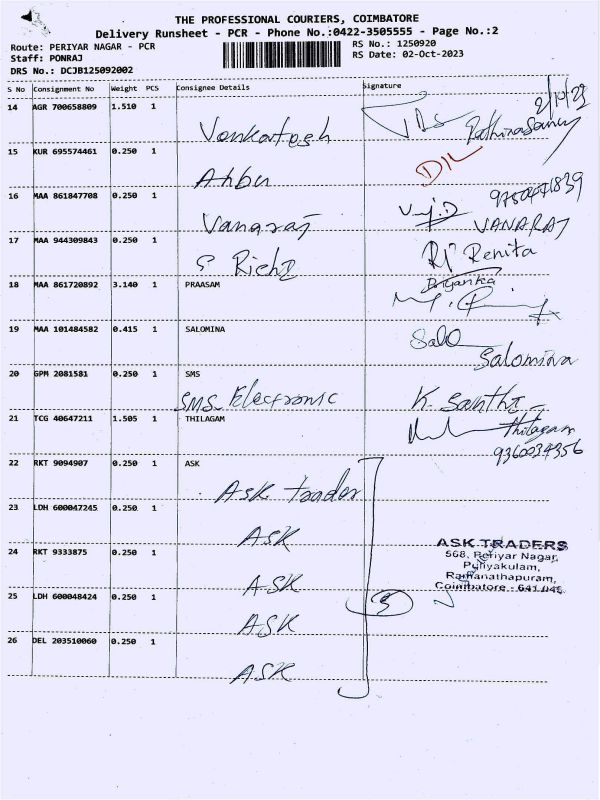 THE PROFESSIONAL COURIERS, COIMBATORE
Delivery Runsheet - PCR - Phone No.:0422-3505555 - Page No.:2
Route: PERIYAR NAGAR - PCR
Staff: PONRAJ
DRS No.: DCJB125092002
RS No.: 1250920
RS Date: 02-Oct-2023
S No Consignment No Weight PCS Consignee Details Signature
14 AGR 700658809 1.510 1
Venkatesh
15 KUR 695574461 0.250 1
Anbu
16 MAA 861847708 0.250 1
Vanaraj VANARAJ
17 MAA 944309843 0.250 1
S Richi Renita
18 MAA 861720892 3.140 1 PRAASAM Priyanka
19 MAA 101484582 0.415 1 SALOMINA
Salo Salomina
20 GPM 2081581 0.250 1 SMS
SMS Electronic K. Santhi
21 TCG 40647211 1.505 1 THILAGAM Thilagam
9360034356
22 RKT 9094907 0.250 1 ASK
ASK trader
23 LDH 600047245 0.250 1
ASK
24 RKT 9333875 0.250 1
ASK
25 LDH 600048424 0.250 1
ASK
26 DEL 203510060 0.250 1
ASK
5
ASK TRADERS
568, Periyar Nagar,
Puliyakulam,
Ramanathapuram,
Coimbatore - 641 045.